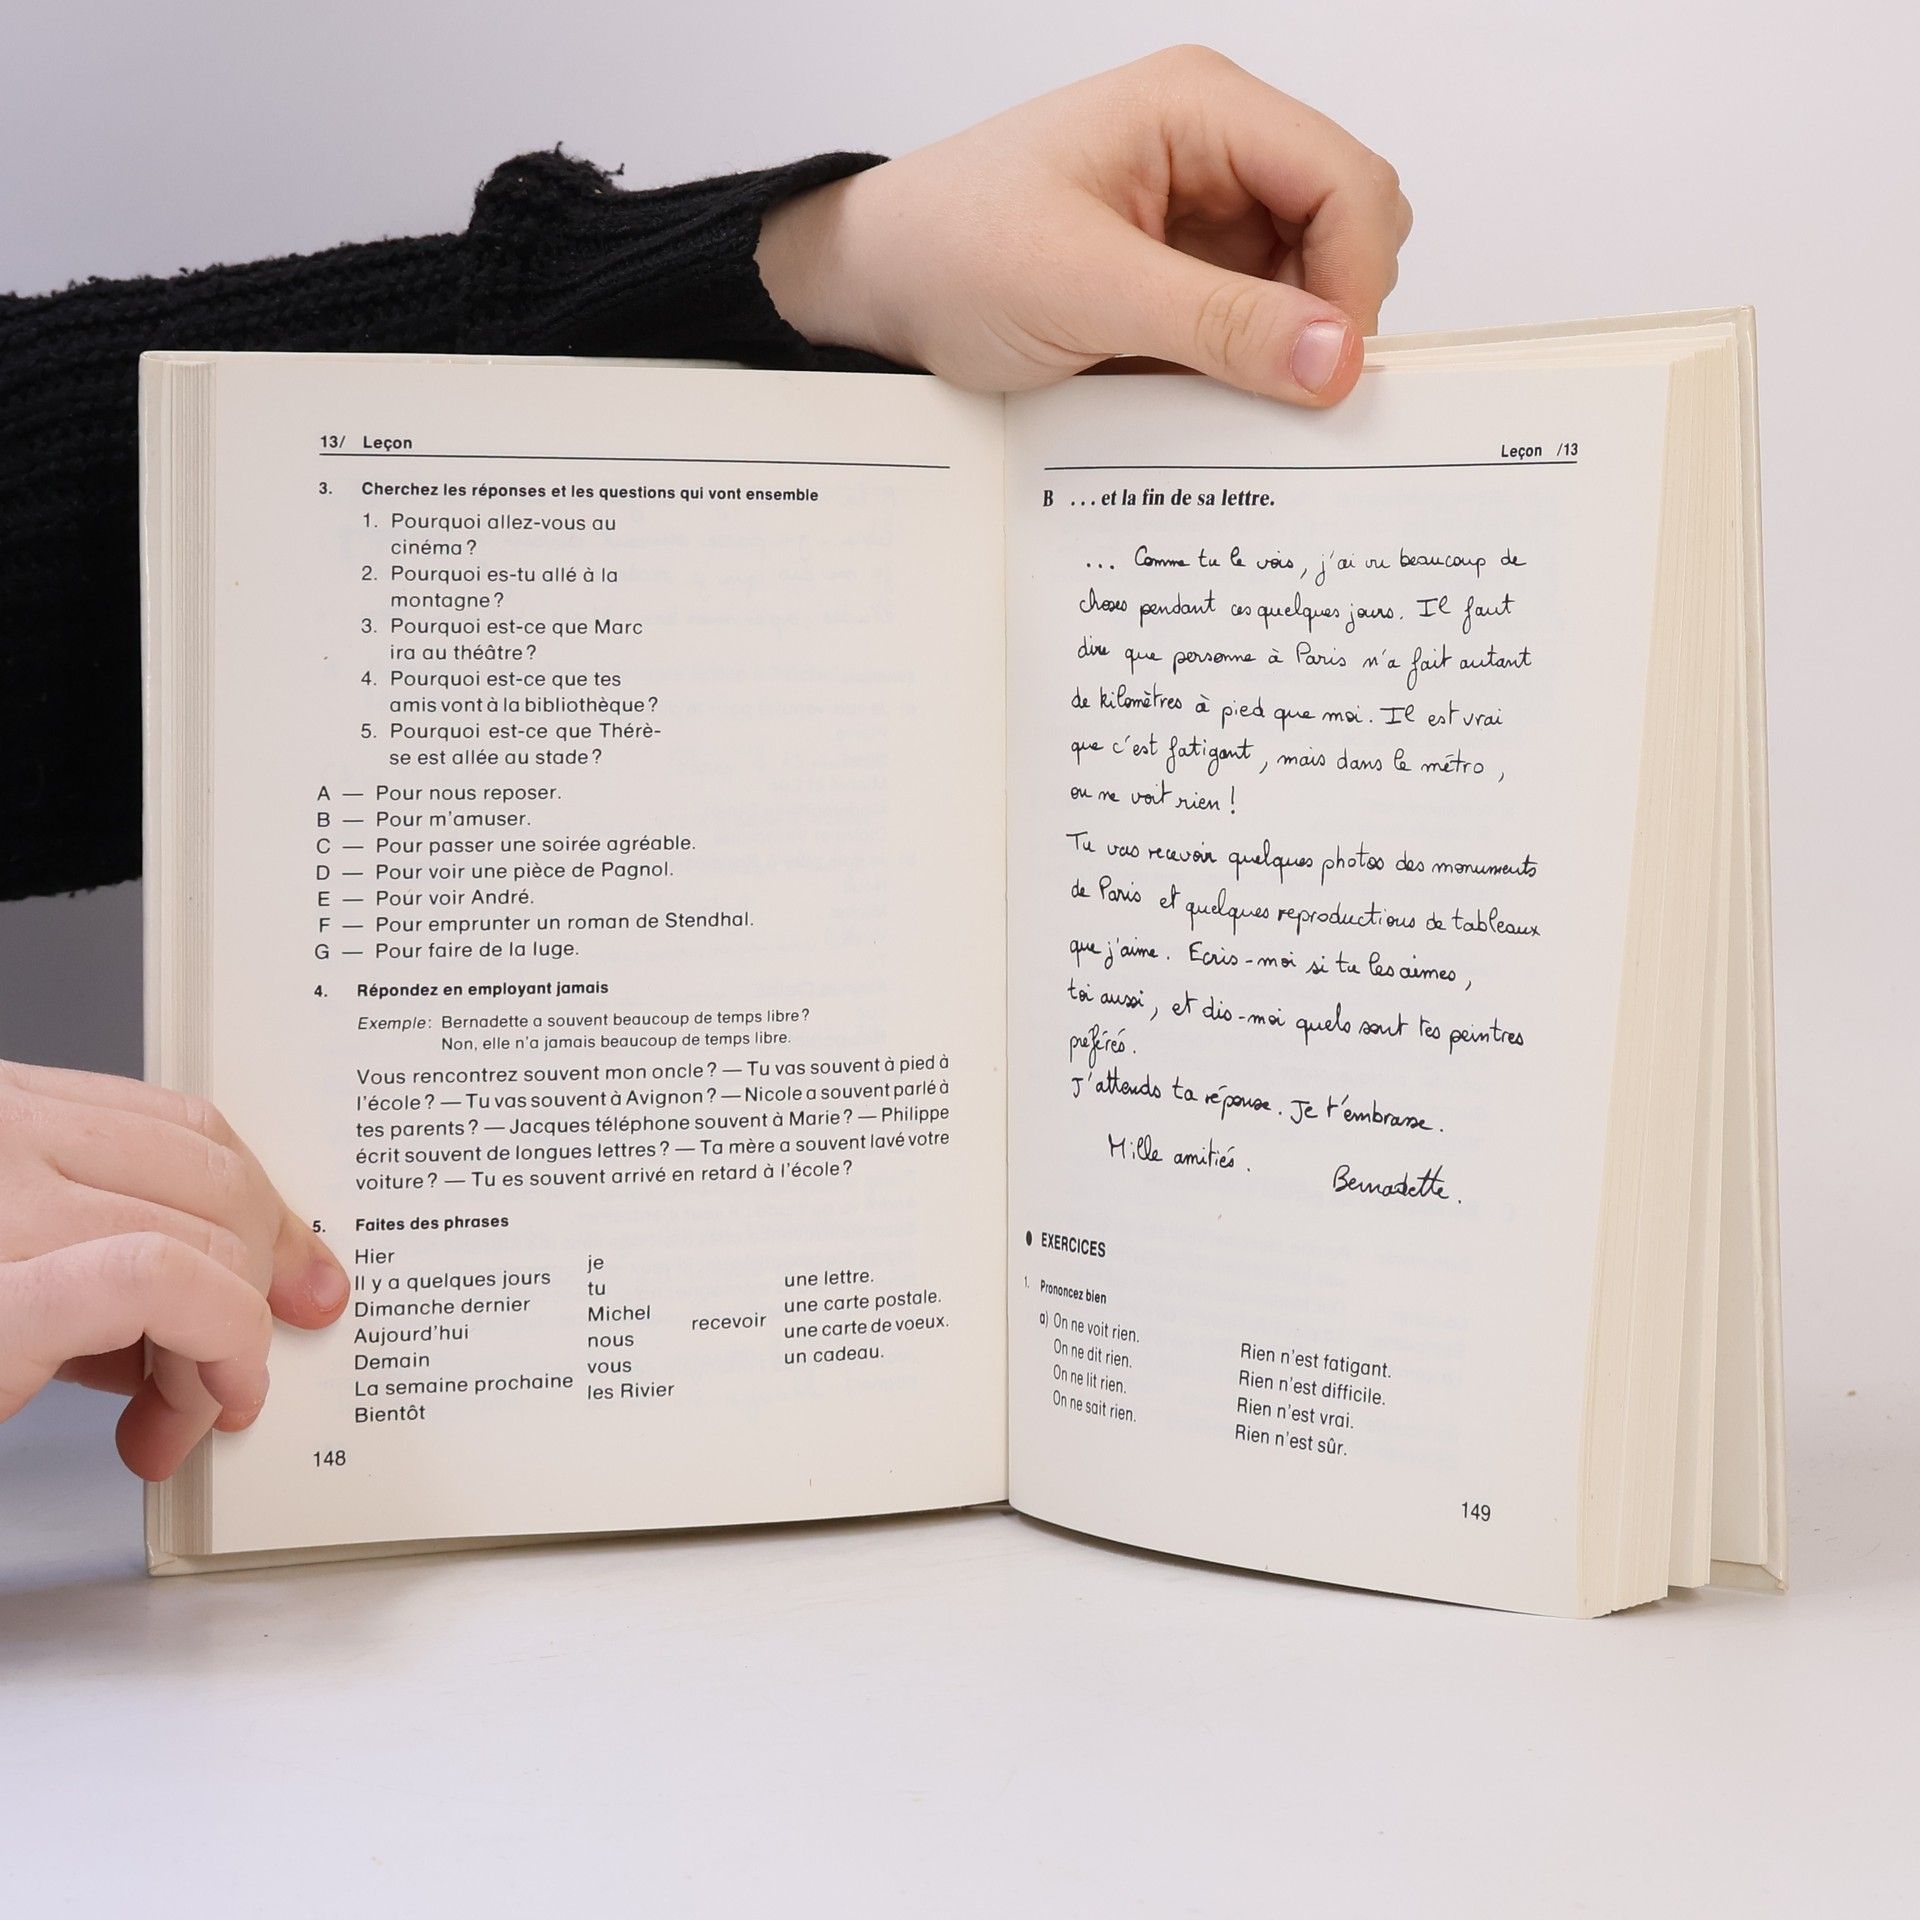 13/ Leçon
3. Cherchez les réponses et les questions qui vont ensemble
1. Pourquoi allez-vous au
cinéma ?
2. Pourquoi es-tu allé à la
montagne ?
3. Pourquoi est-ce que Marc
ira au théâtre ?
4. Pourquoi est-ce que tes
amis vont à la bibliothèque ?
5. Pourquoi est-ce que Thérè-
se est allée au stade ?
A — Pour nous reposer.
B — Pour m'amuser.
C — Pour passer une soirée agréable.
D — Pour voir une pièce de Pagnol.
E — Pour voir André.
F — Pour emprunter un roman de Stendhal.
G — Pour faire de la luge.
4. Répondez en employant jamais
Exemple: Bernadette a souvent beaucoup de temps libre ?
Non, elle n'a jamais beaucoup de temps libre.
Vous rencontrez souvent mon oncle ? — Tu vas souvent à pied à
l'école ? — Tu vas souvent à Avignon ? — Nicole a souvent parlé à
tes parents ? — Jacques téléphone souvent à Marie ? — Philippe
écrit souvent de longues lettres ? — Ta mère a souvent lavé votre
voiture ? — Tu es souvent arrivé en retard à l'école ?
5. Faites des phrases
Hier
Il y a quelques jours
Dimanche dernier
Aujourd'hui
Demain
La semaine prochaine
Bientôt
je
tu
Michel
nous
vous
les Rivier
recevoir
une lettre.
une carte postale.
une carte de voeux.
un cadeau.
148
Leçon /13
B ... et la fin de sa lettre.
... Comme tu le vois, j'ai vu beaucoup de
choses pendant ces quelques jours. Il faut
dire que personne à Paris n'a fait autant
de kilomètres à pied que moi. Il est vrai
que c'est fatigant, mais dans le métro,
on ne voit rien !
Tu vas recevoir quelques photos des monuments
de Paris et quelques reproductions de tableaux
que j'aime. Ecris-moi si tu les aimes,
toi aussi, et dis-moi quels sont tes peintres
préférés.
J'attends ta réponse. Je t'embrasse.
Mille amitiés.
Bernadette.
EXERCICES
1. Prononcez bien
a) On ne voit rien.
On ne dit rien.
On ne lit rien.
On ne sait rien.
Rien n'est fatigant.
Rien n'est difficile.
Rien n'est vrai.
Rien n'est sûr.
149